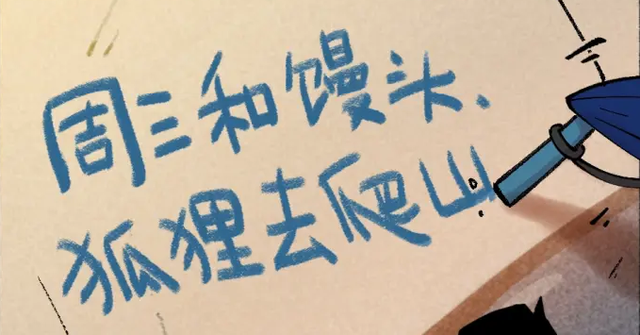 周三和馒头、
狐狸去爬山